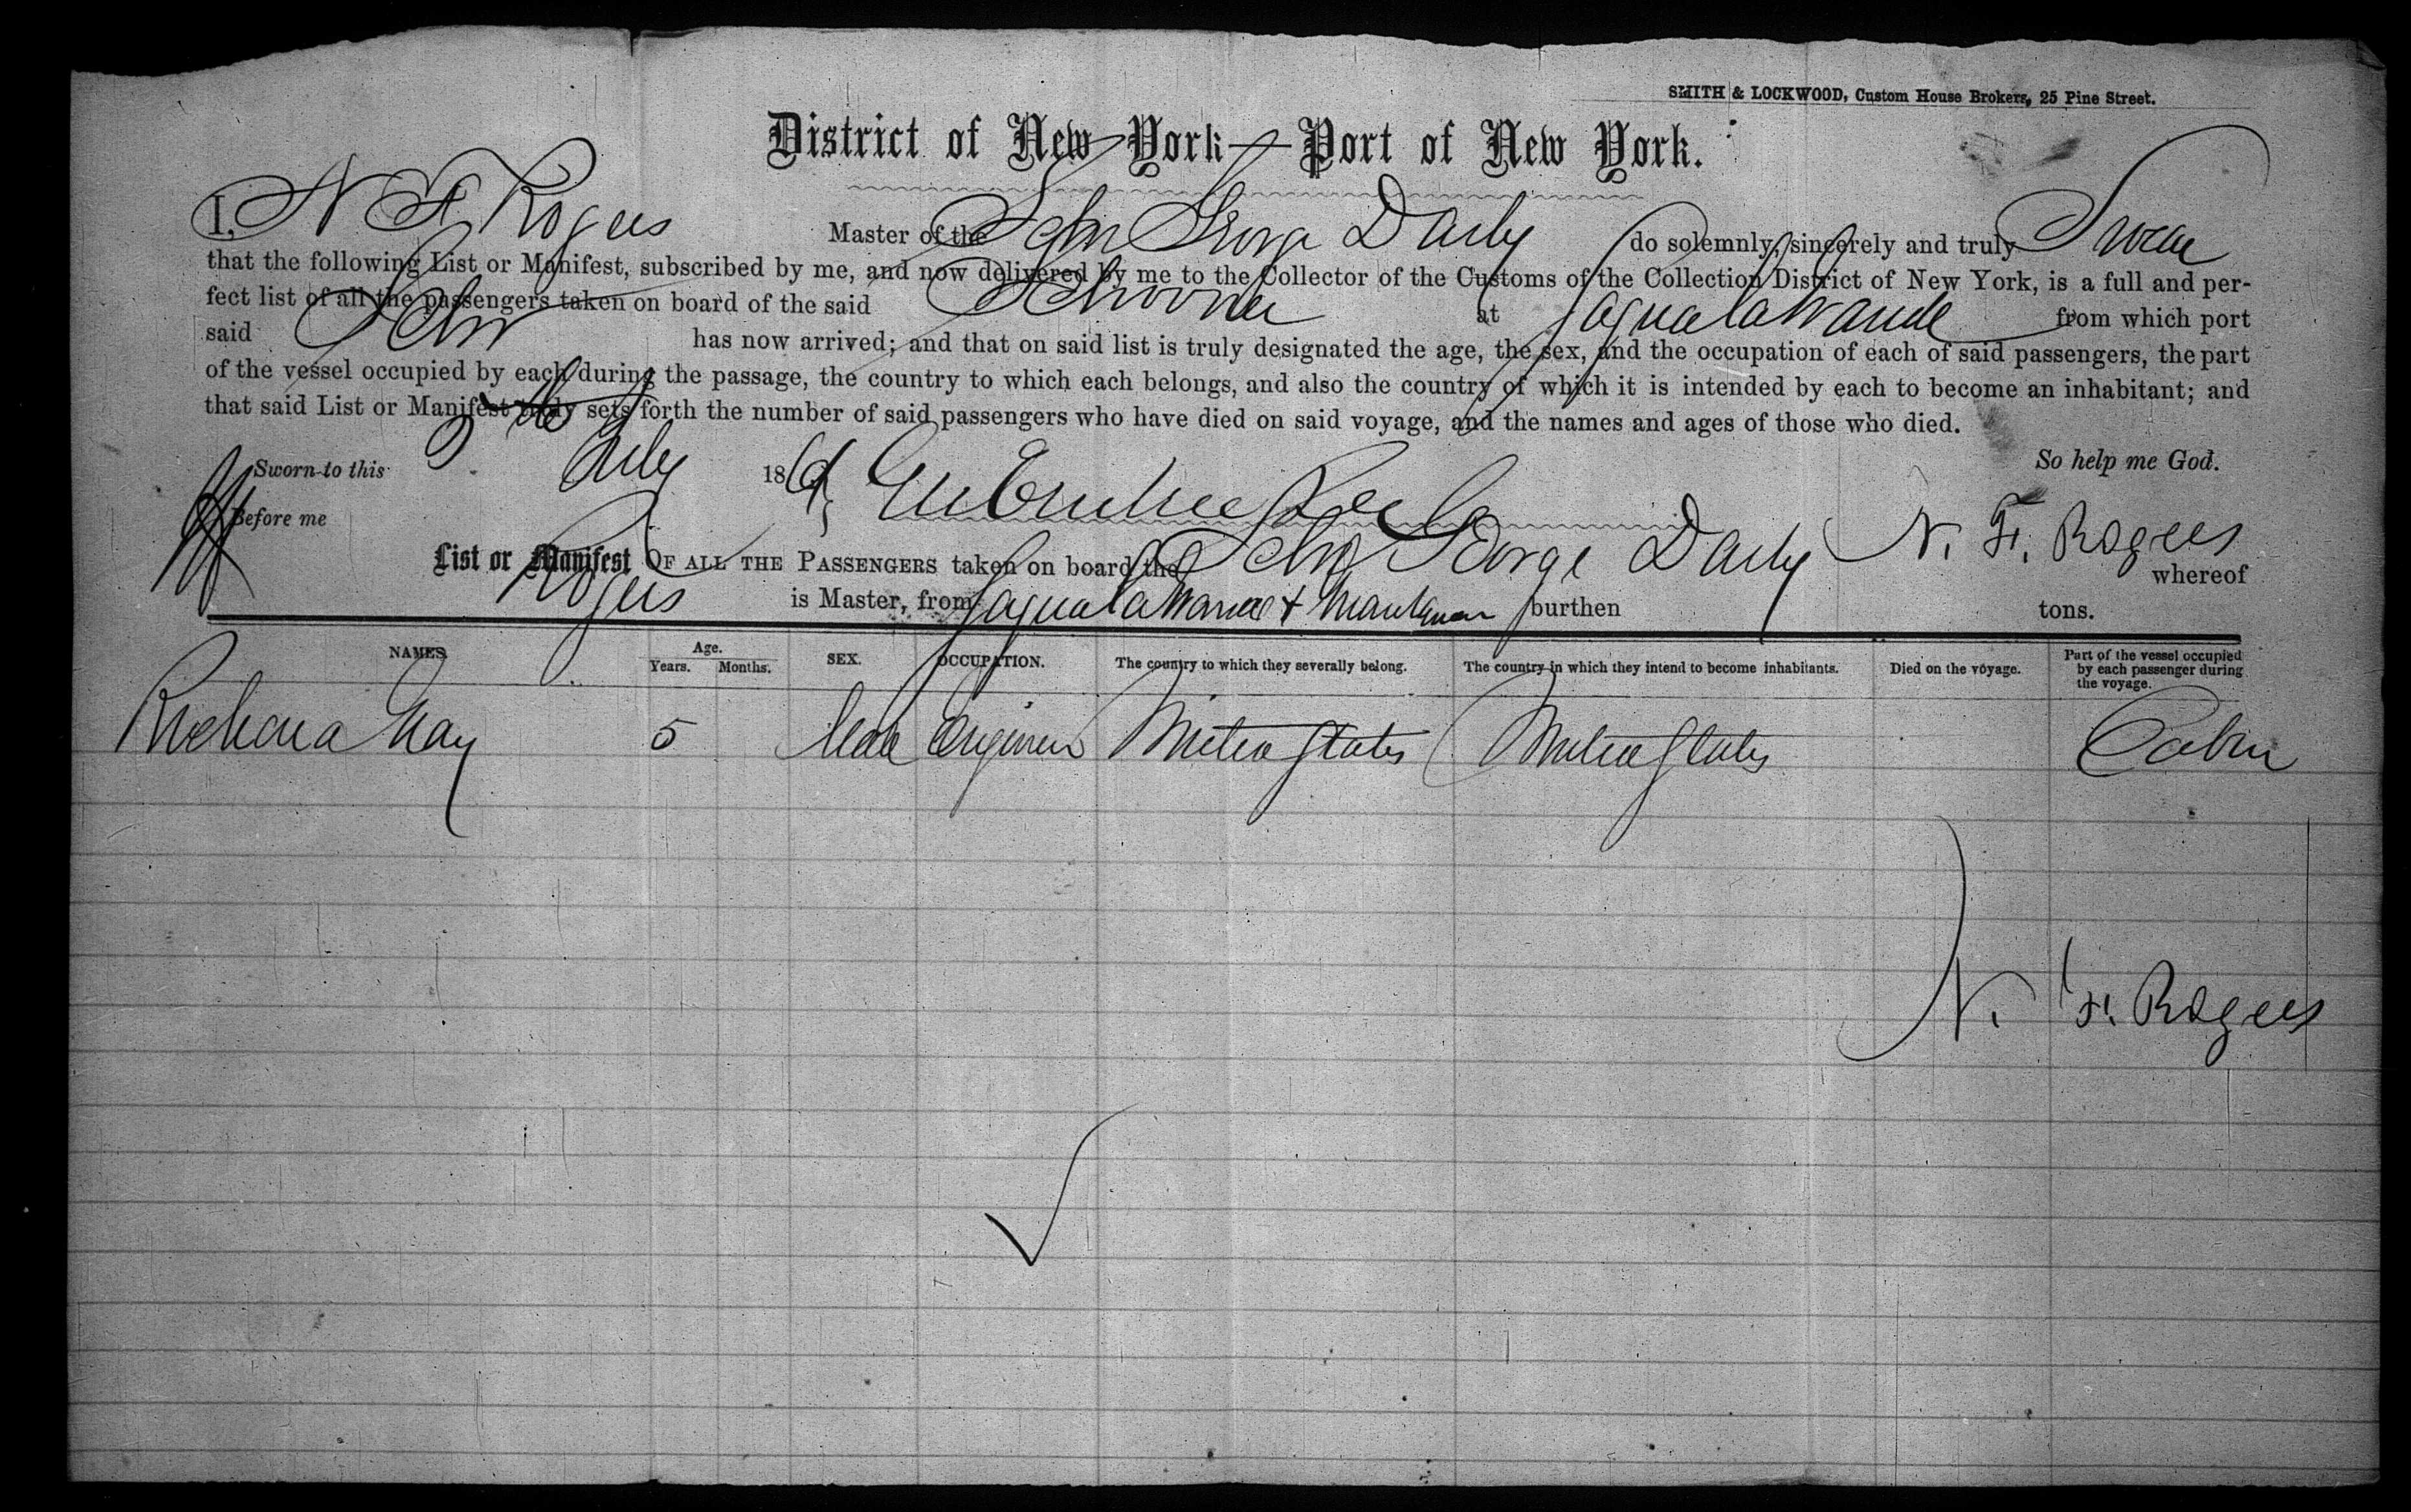 SMITH & LOCKWOOD, Custom House Brokers, 25 Pine Street.
District of New York—Port of New York.
I, N F Rogers Master of the Schr George Darby do solemnly, sincerely and truly Swear
that the following List or Manifest, subscribed by me, and now delivered by me to the Collector of the Customs of the Collection District of New York, is a full and per-
fect list of all the passengers taken on board of the said Schooner at Sagua la Grande from which port
said Schr has now arrived; and that on said list is truly designated the age, the sex, and the occupation of each of said passengers, the part
of the vessel occupied by each during the passage, the country to which each belongs, and also the country of which it is intended by each to become an inhabitant; and
that said List or Manifest truly sets forth the number of said passengers who have died on said voyage, and the names and ages of those who died.
So help me God.
Sworn to this July 186
Before me N. F. Rogers
List or Manifest OF ALL THE PASSENGERS taken on board the Schr George Darby whereof
Rogers is Master, from Sagua la Grande & burthen tons.
NAMES Age. Years. Months. SEX. OCCUPATION. The country to which they severally belong. The country in which they intend to become inhabitants. Died on the voyage. Part of the vessel occupied by each passenger during the voyage.
Richard May 5 Male Engineer United States United States Cabin
N. F. Rogers